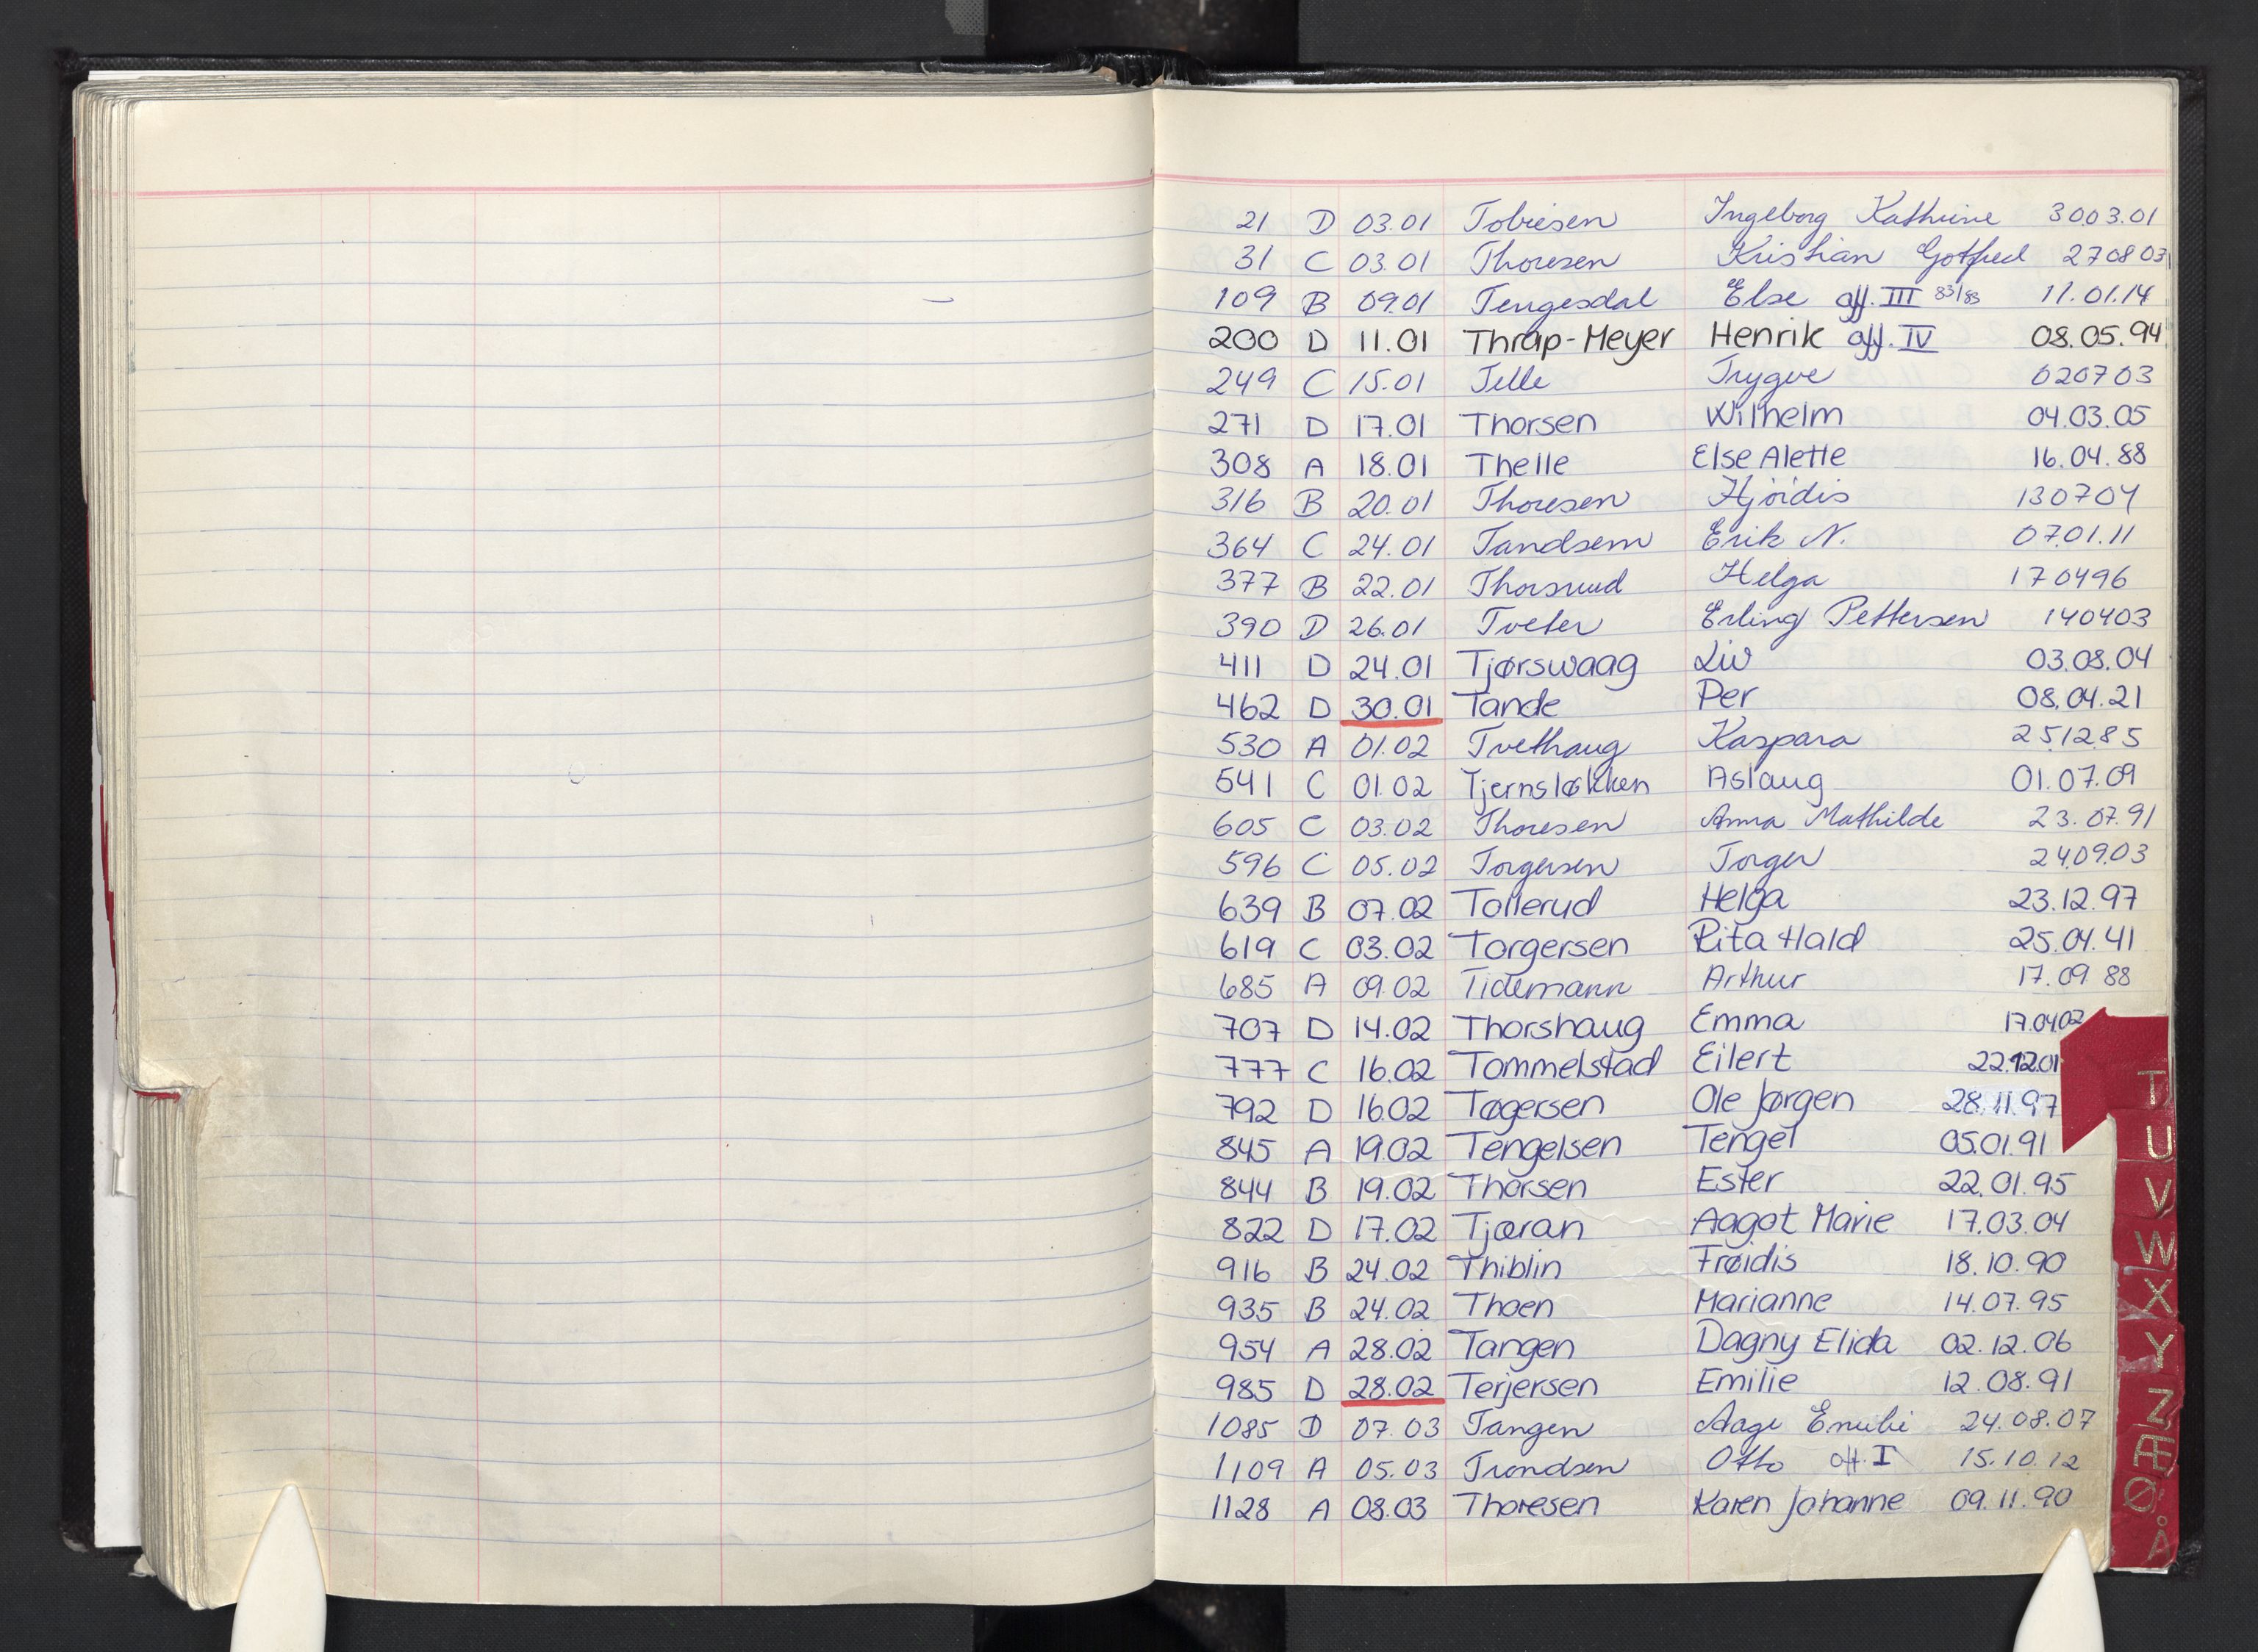 21 D 03.01 Tobiesen Ingeborg Kathrine 30.03.01
31 C 03.01 Thoresen Kristian Gotfred 270803
109 B 09.01 Tengesdal Else off. III 83/83 11.01.14
200 D 11.01 Thrap-Meyer Henrik off. IV 08.05.94
249 C 15.01 Telle Trygve 020703
271 D 17.01 Thorsen Wilhelm 04.03.05
308 A 18.01 Thelle Else Alette 16.04.88
316 B 20.01 Thoresen Hjørdis 130704
364 C 24.01 Tandsem Erik N. 07.01.11
377 B 22.01 Thorsrud Helga 170496
390 D 26.01 Tveter Erling Pettersen 140403
411 D 24.01 Tjørswaag Liv 03.08.04
462 D 30.01 Tande Per 08.04.21
530 A 01.02 Tvethaug Kaspara 251285
541 C 01.02 Tjernsløkken Aslaug 01.07.09
605 C 03.02 Thoresen Anna Mathilde 23.07.91
596 C 05.02 Torgersen Torger 240903
639 B 07.02 Tollerud Helga 23.12.97
619 C 03.02 Torgersen Rita Hald 25.04.41
685 A 09.02 Tidemann Arthur 17.09.88
707 D 14.02 Thorshaug Emma 17.04.02
777 C 16.02 Tommelstad Eilert 22.12.01
792 D 16.02 Tøgersen Ole Jørgen 28.11.97
845 A 19.02 Tengelsen Tengel 05.01.91
844 B 19.02 Thorsen Ester 22.01.95
822 D 17.02 Tjæran Aagot Marie 17.03.04
916 B 24.02 Thiblin Frøidis 18.10.90
935 B 24.02 Thoen Marianne 14.07.95
954 A 28.02 Tangen Dagny Elida 02.12.06
985 D 28.02 Terjersen Emilie 12.08.91
1085 D 07.03 Tangen Aage 24.08.07
1109 A 05.03 Trondsen Otto off. I 15.10.12
1128 A 08.03 Thoresen Karen Johanne 09.11.90
T
U
V
W
X
Y
Z
Æ
Ø
Å